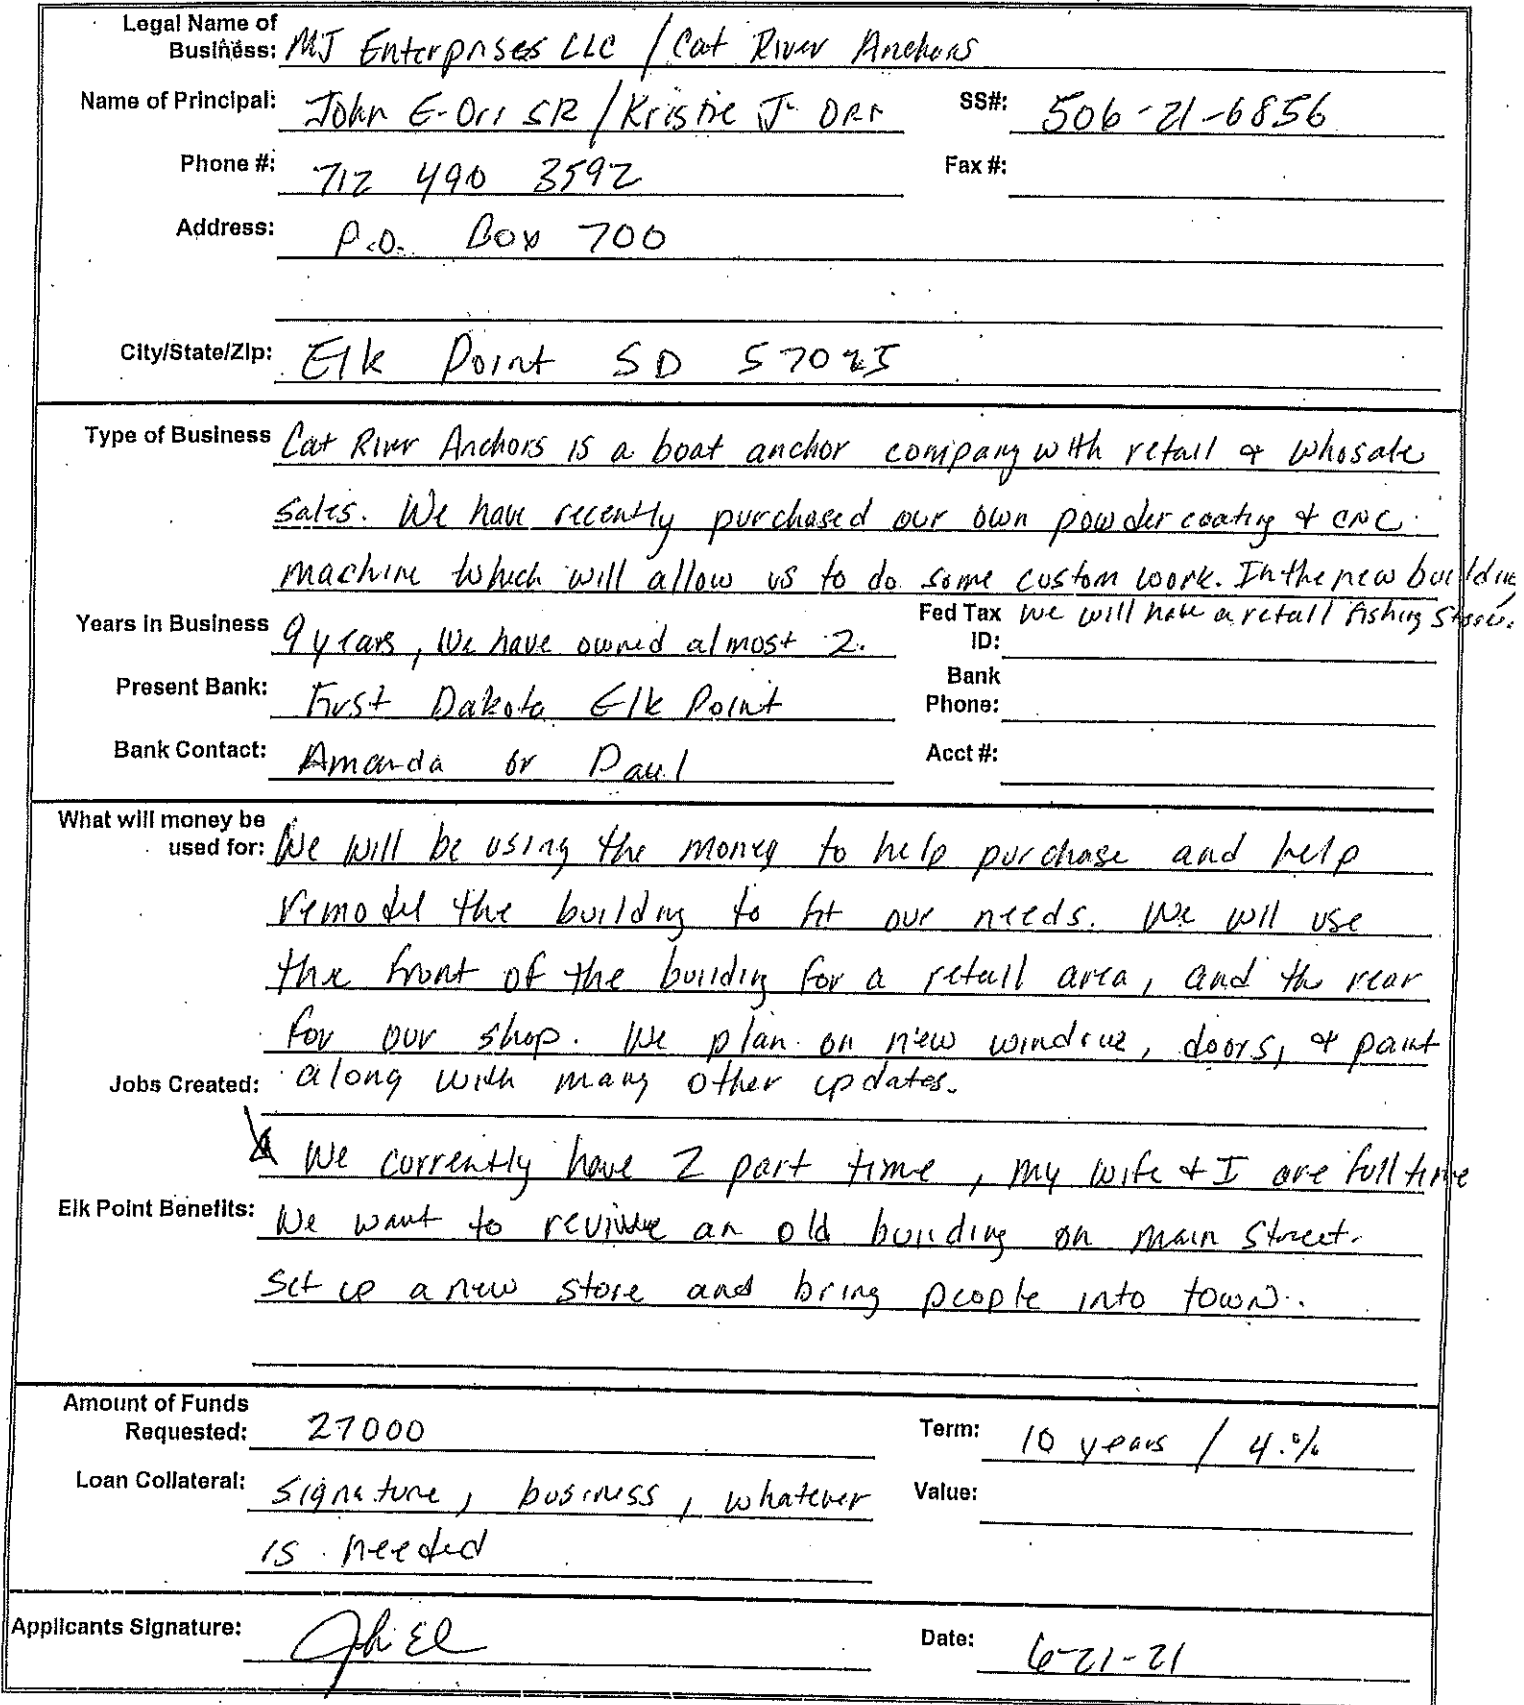 Legal Name of
Business: MJ Enterprises LLC / Cat River Anchors
Name of Principal: John E. Orr SR / Kristie J. Orr SS#: 506-21-6856
Phone #: 712 490 3592 Fax #:
Address: P.O. Box 700
City/State/Zip: Elk Point SD 57025
Type of Business Cat River Anchors is a boat anchor company with retail & Whosale
sales. We have recently purchased our own powder coating & CNC
machine which will allow us to do some custom work. In the new building,
Years in Business 9 years, We have owned almost 2. Fed Tax ID: we will have a retail fishing store.
Present Bank: First Dakota Elk Point Bank Phone:
Bank Contact: Amanda or Paul Acct #:
What will money be
used for: We will be using the money to help purchase and help
remodel the building to fit our needs. We will use
the front of the building for a retail area, and the rear
for our shop. We plan on new window, doors, & paint
Jobs Created: along with many other updates.
We currently have 2 part time, my wife & I are full time
Elk Point Benefits: We want to revive an old building on Main Street.
Set up a new store and bring people into town.
Amount of Funds
Requested: 27000 Term: 10 years / 4.%
Loan Collateral: Signature, business, whatever Value:
is needed
Applicants Signature: Date: 6-21-21